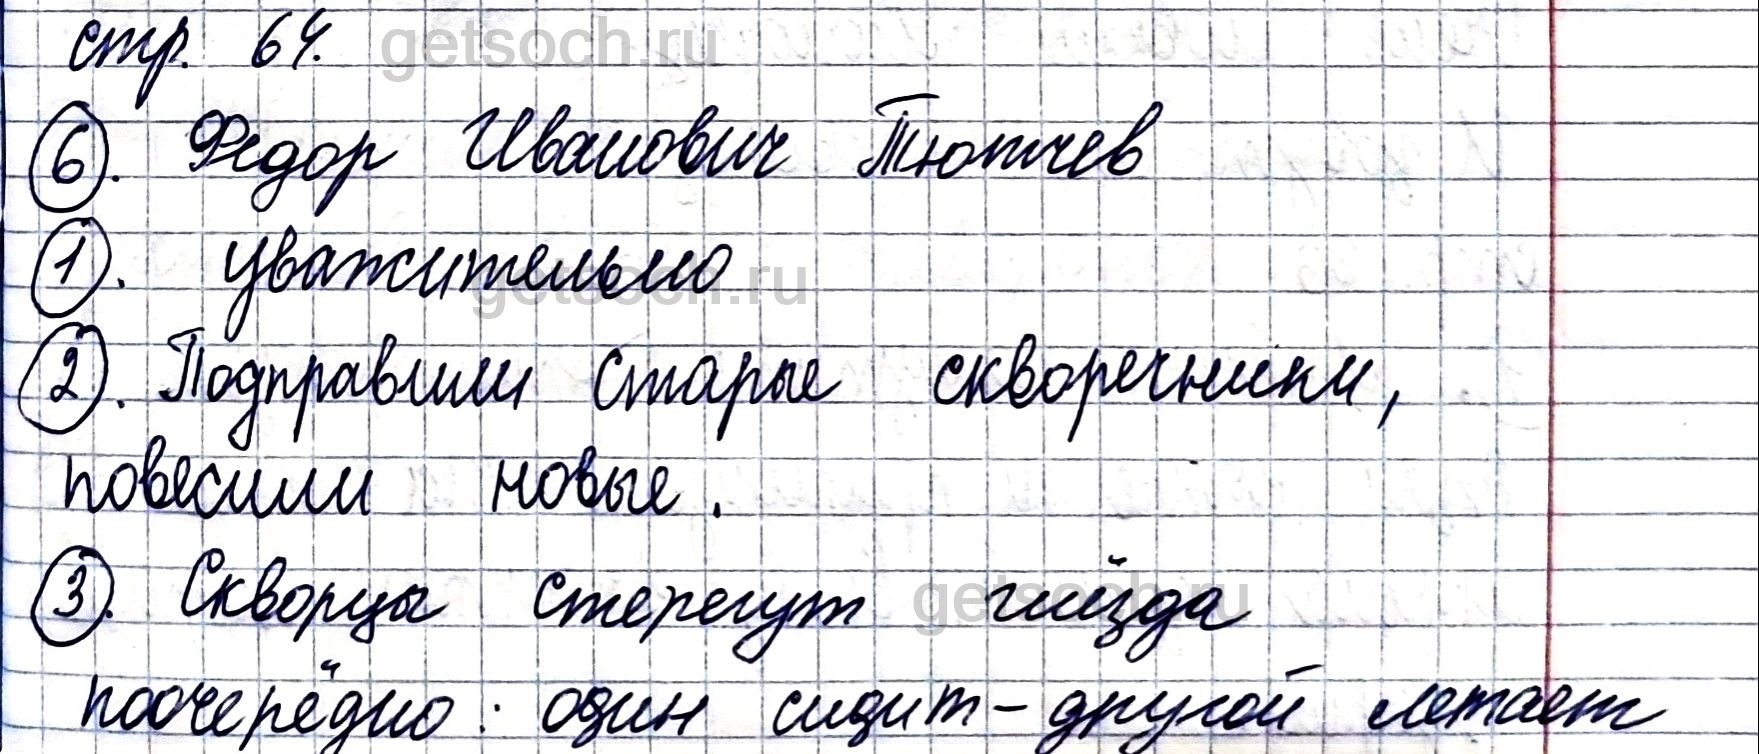 стр. 64. getsoch.ru
6. Федор Иванович Тютчев
1. уважительно
getsoch.ru
2. Подправили старые скворечники,
повесили новые.
3. Скворцы стерегут гнёзда
getsoch.ru
поочерёдно: один сидит - другой летает